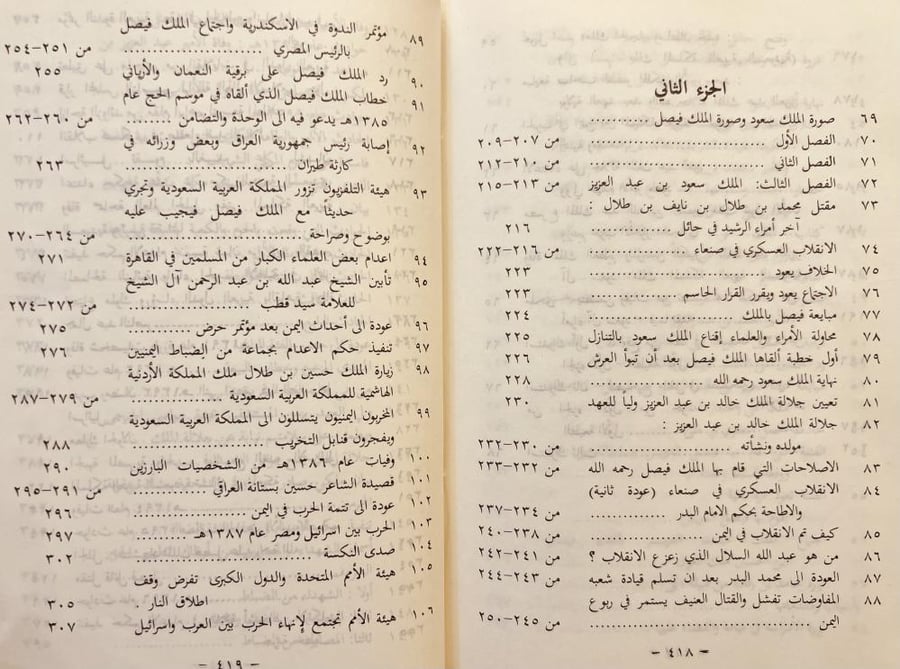 الجزء الثاني
٦٩ صورة الملك سعود وصورة الملك فيصل ............
٧٠ الفصل الأول ............ من ٢٠٧-٢٠٩
٧١ الفصل الثاني ............ من ٢١٠-٢١٢
٧٢ الفصل الثالث: الملك سعود بن عبد العزيز من ٢١٣-٢١٥
٧٣ مقتل محمد بن طلال بن نايف بن طلال :
آخر أمراء الرشيد في حائل ............ ٢١٦
٧٤ الانقلاب العسكري في صنعاء ............ من ٢١٦-٢٢٢
٧٥ الخلاف يعود ............ ٢٢٣
٧٦ الاجتماع يعود ويقرر القرار الحاسم ............ ٢٢٣
٧٧ مبايعة فيصل بالملك ............ ٢٢٤
٧٨ محاولة الأمراء والعلماء إقناع الملك سعود بالتنازل ٢٢٥
٧٩ أول خطبة ألقاها الملك فيصل بعد أن تبوأ العرش ٢٢٦
٨٠ نهاية الملك سعود رحمه الله ............ ٢٢٨
٨١ تعيين جلالة الملك خالد بن عبد العزيز ولياً للعهد ٢٣٠
٨٢ جلالة الملك خالد بن عبد العزيز :
مولده ونشأته ............ من ٢٣٠-٢٣٢
٨٣ الاصلاحات التي قام بها الملك فيصل رحمه الله من ٢٣٢-٢٣٣
٨٤ الانقلاب العسكري في صنعاء (عودة ثانية)
والاطاحة بحكم الامام البدر ............ من ٢٣٤-٢٣٧
٨٥ كيف تم الانقلاب في اليمن ............ من ٢٣٨-٢٤٠
٨٦ من هو عبد الله السلال الذي زعزع الانقلاب ؟ من ٢٤١-٢٤٢
٨٧ العودة الى محمد البدر بعد ان تسلم قيادة شعبه من ٢٤٣-٢٤٤
٨٨ المفاوضات تفشل والقتال العنيف يستمر في ربوع
اليمن ............ من ٢٤٥-٢٥٠
- ٤١٨ -
٨٩ مؤتمر الندوة في الاسكندرية واجتماع الملك فيصل
بالرئيس المصري ............ من ٢٥١-٢٥٤
٩٠ رد الملك فيصل على برقية النعمان والأرياني ٢٥٥
٩١ خطاب الملك فيصل الذي ألقاه في موسم الحج عام
١٣٨٥هـ يدعو فيه الى الوحدة والتضامن ............ من ٢٦٠-٢٦٢
٩٢ إصابة رئيس جمهورية العراق وبعض وزرائه في
كارثة طيران ............ ٢٦٣
٩٣ هيئة التلفزيون تزور المملكة العربية السعودية وتجري
حديثاً مع الملك فيصل فيجيب عليه
بوضوح وصراحة ............ من ٢٦٤-٢٧٠
٩٤ اعدام بعض العلماء الكبار من المسلمين في القاهرة ٢٧١
٩٥ تأبين الشيخ عبد الله بن عبد الرحمن آل الشيخ
للعلامة سيد قطب ............ من ٢٧٢-٢٧٤
٩٦ عودة الى أحداث اليمن بعد مؤتمر حرض ............ ٢٧٥
٩٧ تنفيذ حكم الاعدام بجماعة من الضباط اليمنيين ٢٧٦
٩٨ زيارة الملك حسين بن طلال ملك المملكة الأردنية
الهاشمية للمملكة العربية السعودية ............ من ٢٧٩-٢٨٧
٩٩ المخربون اليمنيون يتسللون الى المملكة العربية السعودية
ويفجرون قنابل التخريب ............ ٢٨٨
١٠٠ وفيات عام ١٣٨٦هـ من الشخصيات البارزين ٢٩٠
١٠١ قصيدة الشاعر حسين بستانة العراقي ............ من ٢٩١-٢٩٥
١٠٢ عودة الى تتمة الحرب في اليمن ............ ٢٩٦
١٠٣ الحرب بين اسرائيل ومصر عام ١٣٨٧هـ ............ ٢٩٧
١٠٤ صدى النكسة ............ ٣٠٢
١٠٥ هيئة الأمم المتحدة والدول الكبرى تفرض وقف
اطلاق النار . ٣٠٥
١٠٦ هيئة الأمم تجتمع لإنهاء الحرب بين العرب واسرائيل ٣٠٧
- ٤١٩ -